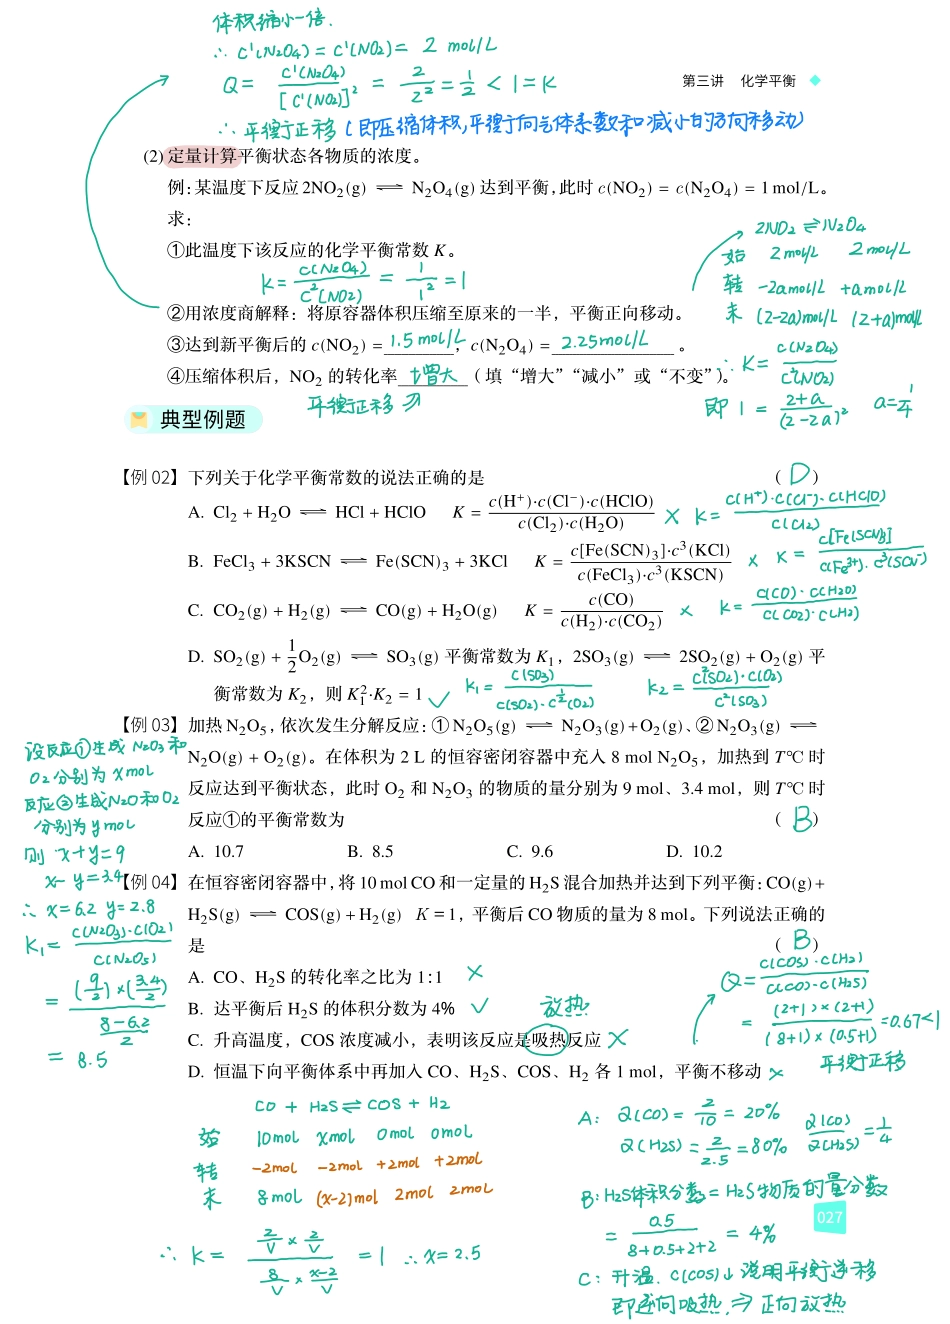 体积缩小一倍.
∴ C'(N₂O₄) = C'(NO₂) = 2 mol/L
Q = C'(N₂O₄) / [C'(NO₂)]² = 2/2² = 1/2 < 1 = K
第三讲 化学平衡
∴ 平衡正移 (即压缩体积,平衡向气体系数和减小的方向移动)
(2) 定量计算平衡状态各物质的浓度。
例:某温度下反应 2NO₂(g) ⇌ N₂O₄(g) 达到平衡,此时 c(NO₂) = c(N₂O₄) = 1 mol/L。
求:
①此温度下该反应的化学平衡常数 K。
K = C(N₂O₄) / C²(NO₂) = 1/1² = 1
②用浓度商解释:将原容器体积压缩至原来的一半,平衡正向移动。
③达到新平衡后的 c(NO₂) = 1.5 mol/L,c(N₂O₄) = 2.25mol/L。
④压缩体积后,NO₂ 的转化率 增大 (填“增大”“减小”或“不变”)。
平衡正移
2NO₂ ⇌ N₂O₄
始 2mol/L 2mol/L
转 -2amol/L +amol/L
末 (2-2a)mol/L (2+a)mol/L
∴ K = C(N₂O₄) / C²(NO₂)
即 1 = (2+a) / (2-2a)² a = 1/4
典型例题
【例 02】下列关于化学平衡常数的说法正确的是 ( D )
A. Cl₂ + H₂O ⇌ HCl + HClO K = c(H⁺)·c(Cl⁻)·c(HClO) / c(Cl₂)·c(H₂O) × K = C(H⁺)·C(Cl⁻)·C(HClO) / C(Cl₂)
B. FeCl₃ + 3KSCN ⇌ Fe(SCN)₃ + 3KCl K = c[Fe(SCN)₃]·c³(KCl) / c(FeCl₃)·c³(KSCN) × K = C[Fe(SCN)₃] / C(Fe³⁺)·C³(SCN⁻)
C. CO₂(g) + H₂(g) ⇌ CO(g) + H₂O(g) K = c(CO) / c(H₂)·c(CO₂) × K = C(CO)·C(H₂O) / C(CO₂)·C(H₂)
D. SO₂(g) + 1/2 O₂(g) ⇌ SO₃(g) 平衡常数为 K₁,2SO₃(g) ⇌ 2SO₂(g) + O₂(g) 平
衡常数为 K₂,则 K₁²·K₂ = 1 √ K₁ = C(SO₃) / C(SO₂)·C^½(O₂) K₂ = C²(SO₂)·C(O₂) / C²(SO₃)
【例 03】加热 N₂O₅,依次发生分解反应:①N₂O₅(g) ⇌ N₂O₃(g)+O₂(g)、②N₂O₃(g) ⇌
N₂O(g) + O₂(g)。在体积为 2 L 的恒容密闭容器中充入 8 mol N₂O₅,加热到 T℃ 时
反应达到平衡状态,此时 O₂ 和 N₂O₃ 的物质的量分别为 9 mol、3.4 mol,则 T℃ 时
反应①的平衡常数为 ( B )
A. 10.7 B. 8.5 C. 9.6 D. 10.2
设反应①生成 N₂O₃和
O₂分别为 xmol
反应②生成N₂O和O₂
分别为ymol
则 x+y=9
x-y=3.4
∴ x=6.2 y=2.8
K₁ = C(N₂O₃)·C(O₂) / C(N₂O₅)
= (9/2)×(3.4/2) / ((8-6.2)/2)
= 8.5
【例 04】在恒容密闭容器中,将 10 mol CO 和一定量的 H₂S 混合加热并达到下列平衡:CO(g)+
H₂S(g) ⇌ COS(g)+H₂(g) K = 1,平衡后 CO 物质的量为 8 mol。下列说法正确的
是 ( B )
A. CO、H₂S 的转化率之比为 1:1 ×
B. 达平衡后 H₂S 的体积分数为 4% √ 放热
C. 升高温度,COS 浓度减小,表明该反应是吸热反应 ×
D. 恒温下向平衡体系中再加入 CO、H₂S、COS、H₂ 各 1 mol,平衡不移动 ×
Q = C(COS)·C(H₂) / C(CO)·C(H₂S)
= (2+1)×(2+1) / (8+1)×(0.5+1) = 0.67<1
平衡正移
CO + H₂S ⇌ COS + H₂
始 10mol xmol 0mol 0mol
转 -2mol -2mol +2mol +2mol
末 8mol (x-2)mol 2mol 2mol
∴ K = (2/V × 2/V) / (8/V × (x-2)/V) = 1 ∴ x=2.5
A: α(CO) = 2/10 = 20% α(CO)/α(H₂S) = 1/4
α(H₂S) = 2/2.5 = 80%
B: H₂S体积分数 = H₂S物质的量分数
= 0.5 / (8+0.5+2+2) = 4%
C: 升温. C(COS)↓ 说明平衡逆移
即逆向吸热 ⇒ 正向放热
027